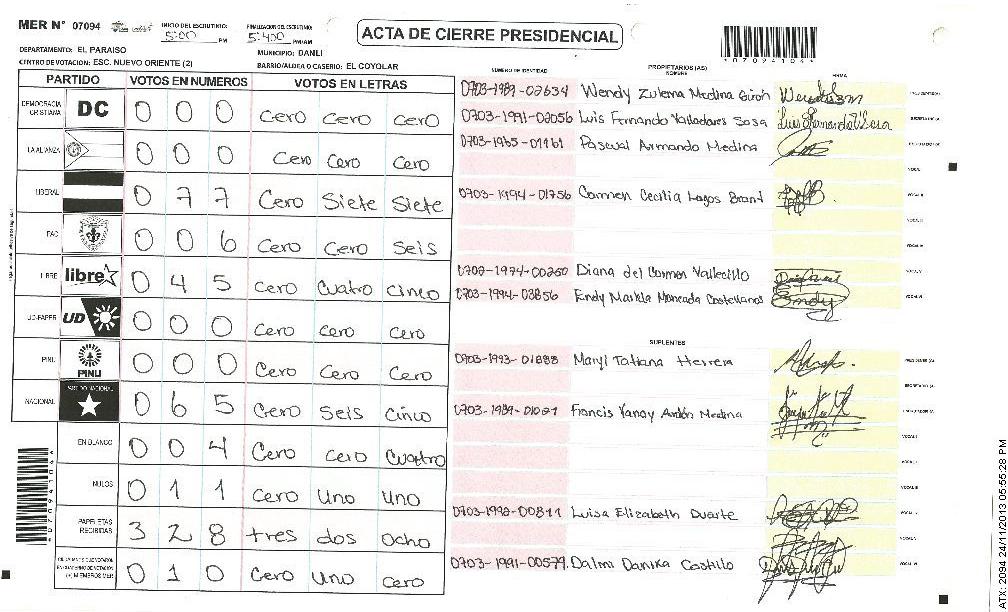 MER N° 07094
INICIO DEL ESCRUTINIO: 5:00 PM
FINALIZACION DEL ESCRUTINIO: 5:400 PM/AM
ACTA DE CIERRE PRESIDENCIAL
DEPARTAMENTO: EL PARAISO
MUNICIPIO: DANLI
CENTRO DE VOTACION: ESC. NUEVO ORIENTE (2)
BARRIO/ALDEA O CASERIO: EL COYOLAR
PARTIDO VOTOS EN NUMEROS VOTOS EN LETRAS
NUMERO DE IDENTIDAD PROPIETARIOS (AS) NOMBRE FIRMA
DEMOCRACIA CRISTIANA DC 0 0 0 Cero Cero Cero
LA ALIANZA 0 0 0 Cero Cero Cero
LIBERAL 0 7 7 Cero Siete Siete
FAC 0 0 6 Cero Cero Seis
LIBRE libre 0 4 5 Cero Cuatro Cinco
UD-FAPER UD 0 0 0 Cero Cero Cero
PINU PINU 0 0 0 Cero Cero Cero
NACIONAL 0 6 5 Cero Seis Cinco
EN BLANCO 0 0 4 Cero Cero Cuatro
NULOS 0 1 1 Cero Uno Uno
PAPELETAS RECIBIDAS 3 2 8 tres dos Ocho
MIEMBROS MER 0 1 0 Cero Uno Cero
0703-1989-02634 Wendy Zulema Medina Giron
0703-1991-02056 Luis Fernando Valladares Sosa
0703-1965-01161 Pascual Armando Medina
0703-1994-01756 Carmen Cecilia Lagos Brant
0702-1974-00250 Diana del Carmen Vallecillo
0703-1994-03856 Endy Markla Moncada Castellanos
SUPLENTES
0703-1993-01888 Maryl Tatiana Herrera
0703-1989-01021 Francis Yanay Andon Medina
0703-1992-00811 Luisa Elizabeth Duarte
0703-1991-00579 Dalmi Danixa Castillo
ATX: 2094 24/11/2013 05:55:28 PM